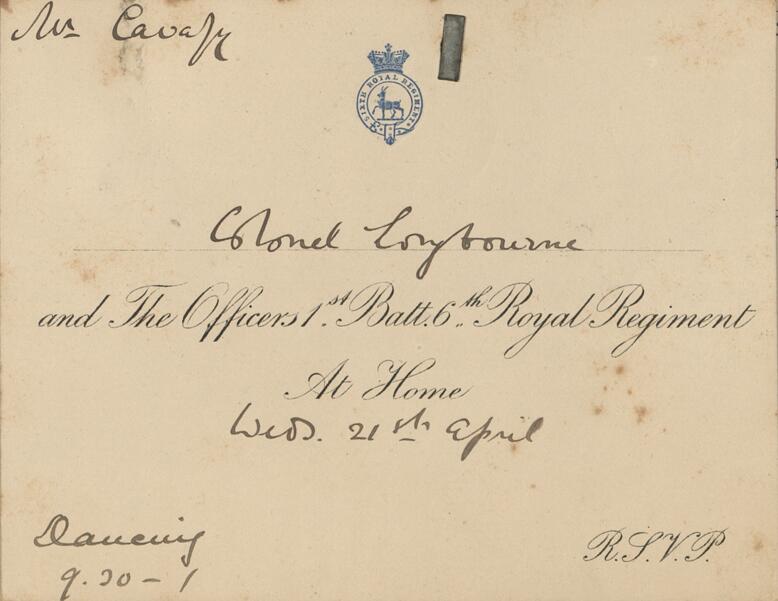 Mr Cavafy
SIXTH ROYAL REGIMENT
Colonel Longbourne
and The Officers 1st. Batt. 6th. Royal Regiment
At Home
Weds. 21st April
Dancing
9.30 - 1
R.S.V.P.